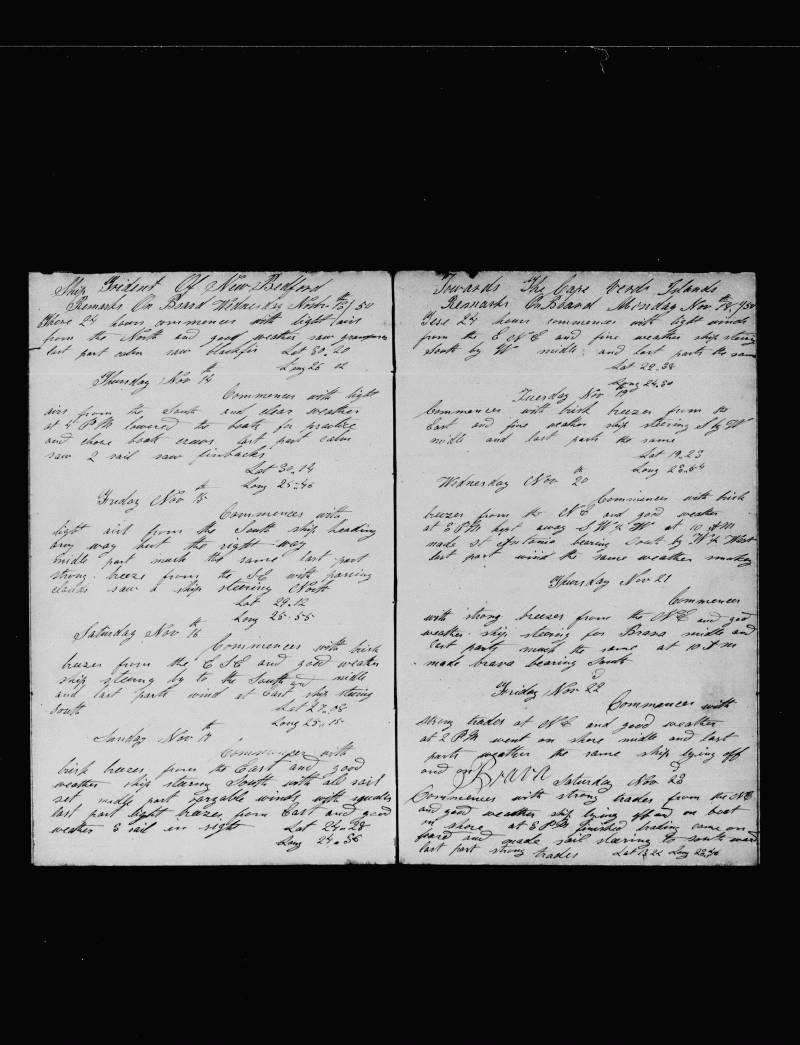 Ship Trident Of New Bedford
Remarks On Board Wednesday Novr 13th/50
These 24 hours commences with light airs
from the North and good weather saw grampuses
last part calm saw blackfis Lat 30..20
Long 26 12
Thursday Nov 14th
Commences with light
airs from the South and clear weather
at 4 PM lowered the boats for practice
and chose boats crews last part calm
saw 2 sail saw finbacks
Lat 30..14
Long 25..46
Friday Nov 15th
Commences with
light airs from the South ship heading
any way but the right way
middle part much the same last part
strong breeze from the SE with passing
clouds saw a ship steering North
Lat 29..12
Long 25..55
Saturday Nov 16th
Commences with brisk
breezes from the ESE and good weather
ship steering by to the South and middle
and last parts wind at East ship steering
South Lat 27..08
Long 25..15
Sunday Nov 17th
Commences with
brisk breezes from the East and good
weather ship staring South with all sail
set midle part variable winds with squales
last part light breeze from East and good
weather 3 sail in sight Lat 24..28
Long 24..56
Towards The Cape Verds Islands
Remarks On Board Monday Nov 18th/50
These 24 hours commences with light winds
from the ENE and fine weather ship steering
South by W midle and last parts the same
Lat 22..38
Long 24..50
Tuesday Nov 19th
Commences with brisk breezes from the
East and fine weather ship steering S by W
midle and last parts the same
Lat 19..23
Long 23..54
Wednesday Nov 20th
Commences with brisk
breezes from the NE and good weather
at 3 PM kept away SW by W at 10 AM
made St Antonia bearing South by W by West
last part wind the same weather smokey
Thursday Nov 21
Commences
with strong breezes from the NE and good
weather ship steering for Brava midle and
last parts much the same at 10 AM
made brava bearing South
Friday Nov 22d
Commences with
strong trades at NE and good weather
at 2 PM went on shore midle and last
parts weather the same ship lying off
and on Brava Saturday Nov 23
Commences with strong trades from the NE
and good weather ship lying off and on boat
on shore at 3 PM finished trading came on
board and made sail staring to southward
last part strong trades Lat 13..22 Long 23..56